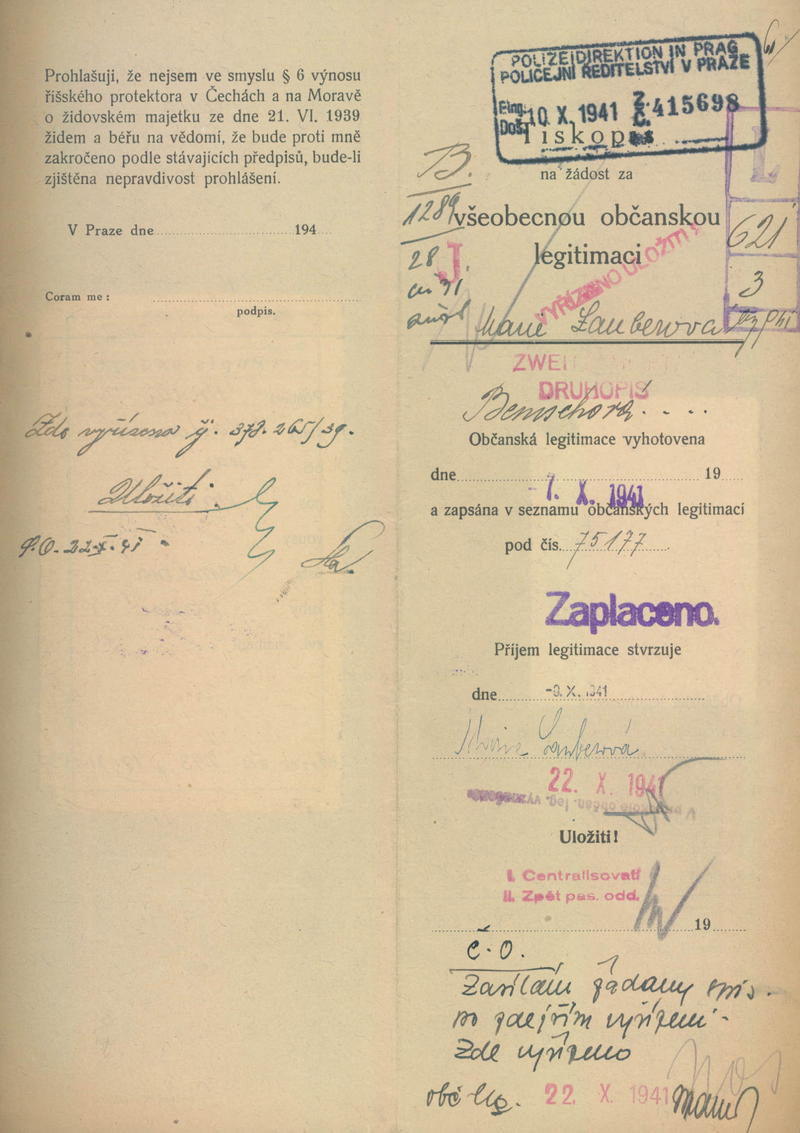 Prohlašuji, že nejsem ve smyslu § 6 výnosu
říšského protektora v Čechách a na Moravě
o židovském majetku ze dne 21. VI. 1939
židem a béřu na vědomí, že bude proti mně
zakročeno podle stávajících předpisů, bude-li
zjištěna nepravdivost prohlášení.
V Praze dne 194
Coram me :
podpis.
Zde vyřízeno j. 378.265/39.
Uložiti.
22.X.41
POLIZEIDIREKTION IN PRAG
POLICEJNÍ ŘEDITELSTVÍ V PRAZE
Eing. 10 X. 1941 Z. 415698
Došlo Č.
Tiskopis
na žádost za
B.
1289
všeobecnou občanskou
621
28 J. legitimaci
VYŘÍZENO ULOŽITI
3
Marie Lauberová
ZWEI
DRUHOPIS
Občanská legitimace vyhotovena
dne 19
-7. X. 1941
a zapsána v seznamu občanských legitimací
pod čís. 75177
Zaplaceno.
Příjem legitimace stvrzuje
dne -9. X. 1941
Marie Lauberová
22. X. 1941
Uložiti!
I. Centralisovati
II. Zpět pas. odd.
19
Č.O.
Zasílám žádaný spis
po zdejším vyřízení -
Zde vyřízeno
obč. leg. 22. X. 1941